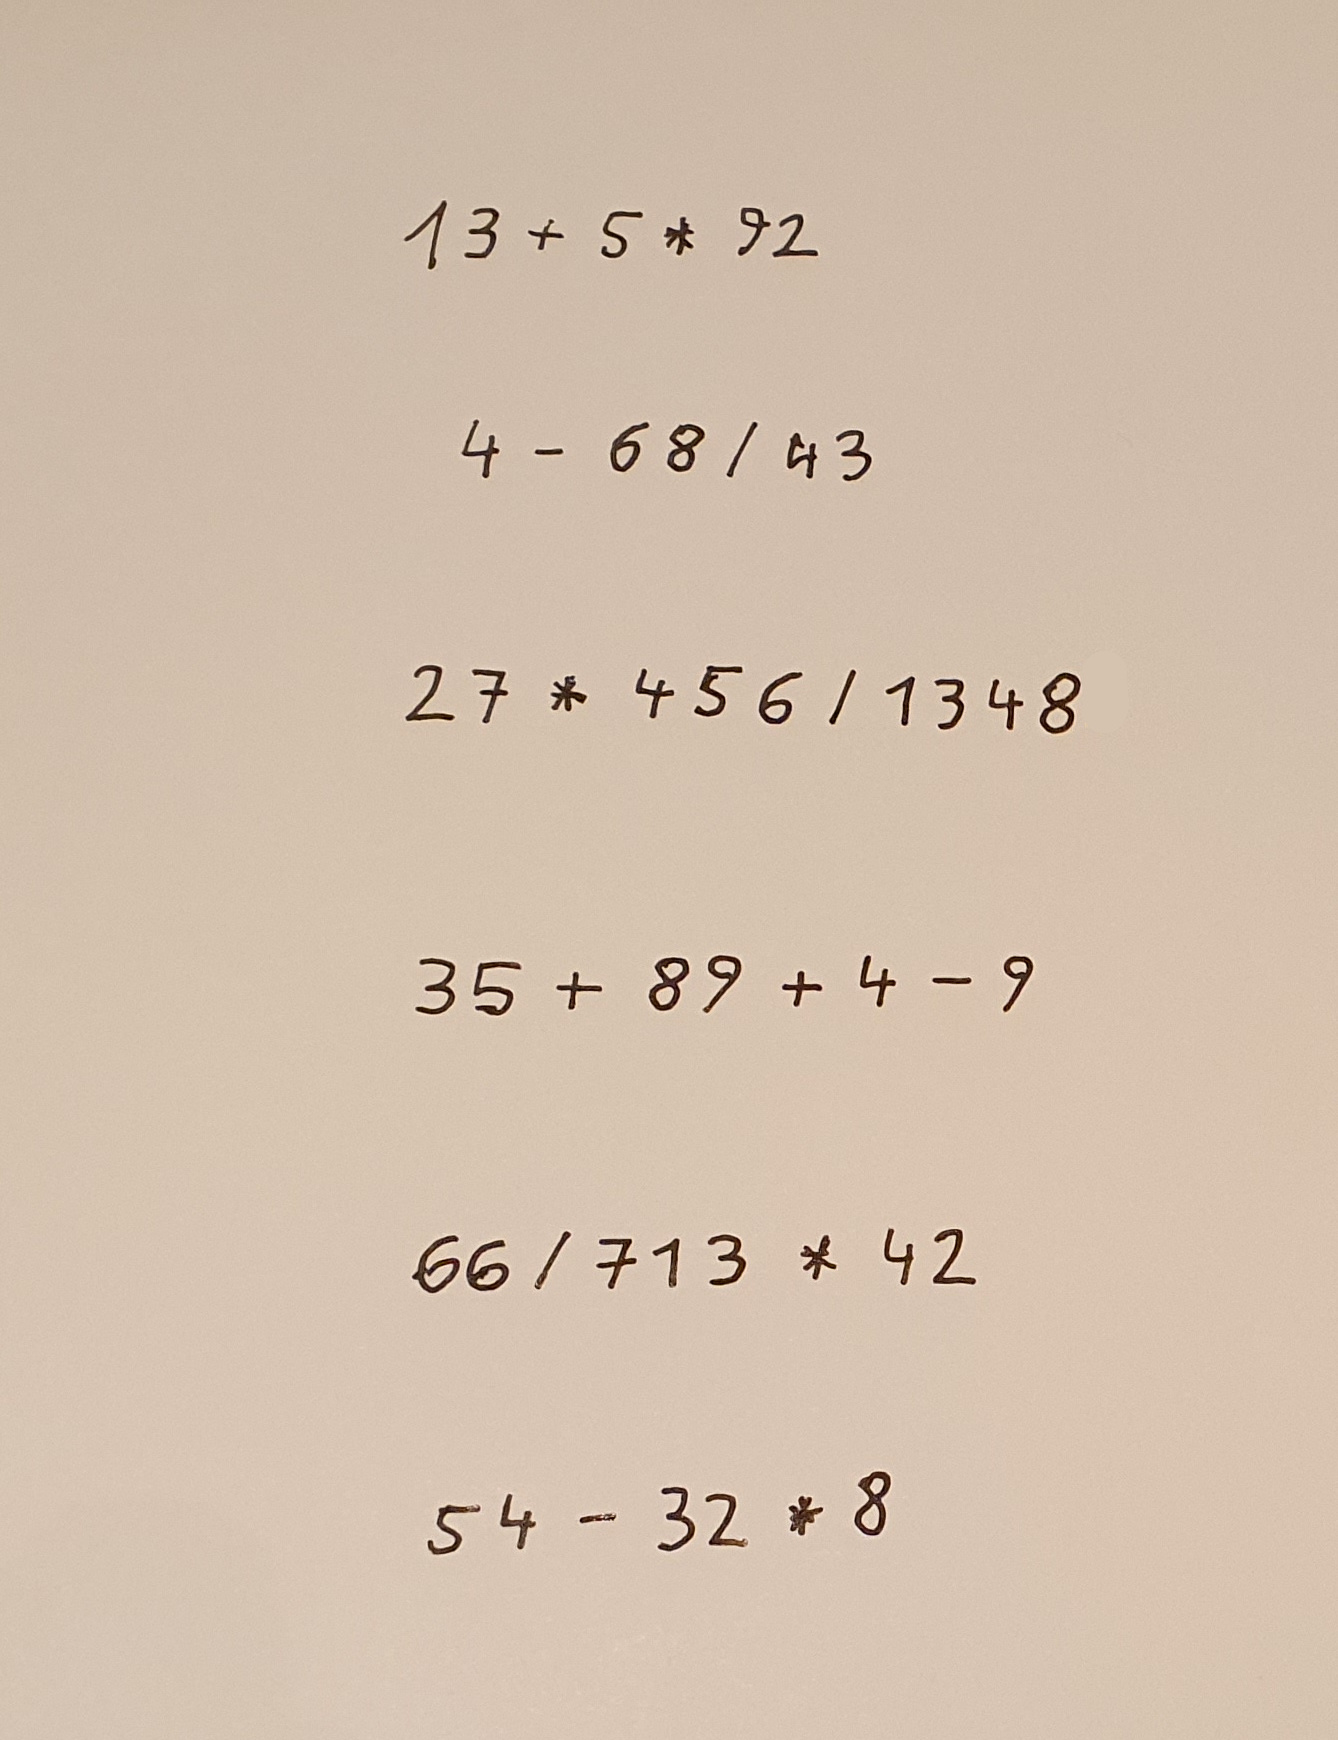 13 + 5 * 92
4 - 68 / 43
27 * 456 / 1348
35 + 89 + 4 - 9
66 / 713 * 42
54 - 32 * 8